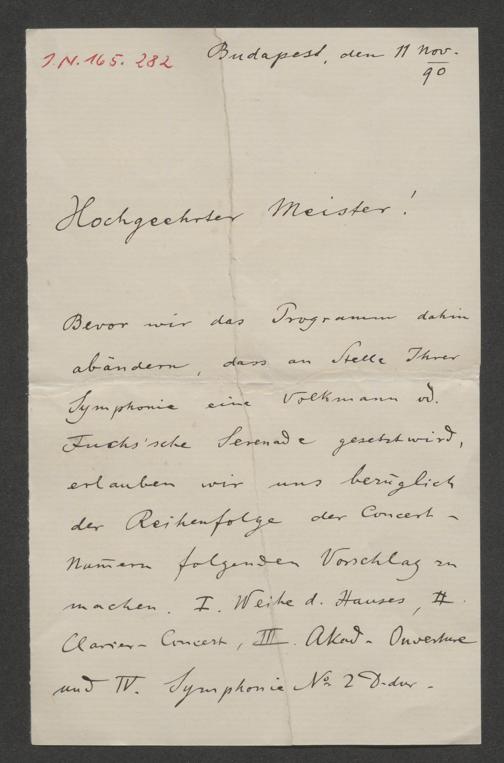 J.N. 165.282
Budapest, den 11 Nov.
90
Hochgeehrter Meister!
Bevor wir das Programm dahin
abändern, dass an Stelle Ihrer
Symphonie eine Volkmann od.
Fuchs'sche Serenade gesetzt wird,
erlauben wir uns bezüglich
der Reihenfolge der Concert-
Num̅ern folgenden Vorschlag zu
machen. I. Weihe d. Hauses, II.
Clavier-Concert, III. Akad. Ouverture
und IV. Symphonie No 2 D-dur.